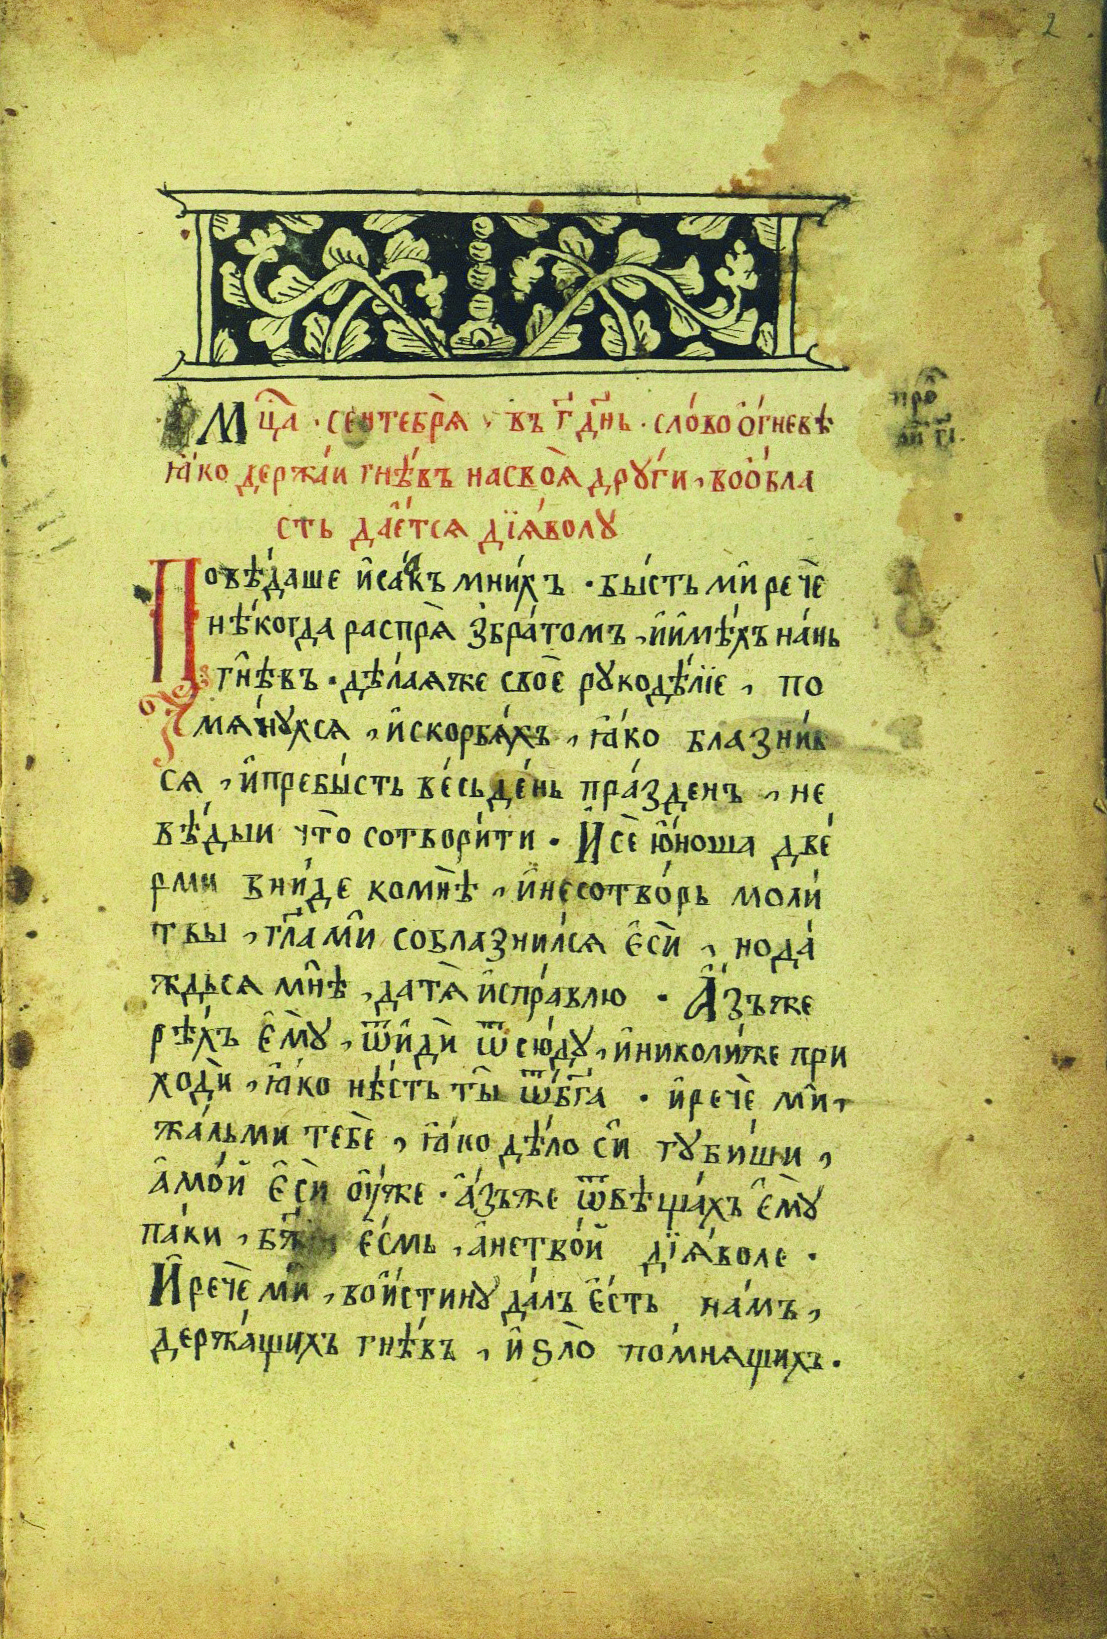 2
Мц҃а · сентебря̀ · въ г҃ дн҃ь · сло́во о҆́гневѣ
ꙗ҆́ко держа́и гнѣ́въ насвоѧ̀ дрꙋ́ги , во о҆́бла
сть дае҆́тсѧ дїѧ́волꙋ
Повѣ́даше и҆са́къ мни́хъ · бы́сть мѝ рече
нѣ́когда распрѧ̀ з̾бра́томъ , и҆и҆мѣ́хъ на́нь
гнѣ́въ · дѣ́лаѧже свое рꙋкодѣ́лїе , по
мѧнꙋ́хсѧ , и҆скорбѧ́хъ , ꙗ҆́ко блазни́в
сѧ , и҆пребы́сть ве́сь де́нь пра́зденъ , не
вѣ́дыи что̀ сотвори́ти · И҆ сѐ ю҆́ноша две́
рми вни́де комнѣ̀ , и҆несотво́рь моли́
твы , гл҃а мѝ соблазни́лсѧ є҆сѝ , но да́
ждьсѧ мнѣ̀ , датѧ̀ и҆спра́влю · А҆́зъже
рѣ́хъ є҆мꙋ̀ , ѿи҆дѝ ѿсю́дꙋ , и҆николи́же при
ходѝ , ꙗ҆́ко нѣ́сть ты̀ ѿ бг҃а · и҆речѐ мѝ ,
жа́льми тебѐ , ꙗ҆́ко дѣ́ло сѝ гꙋ́биши ,
а҆мо́й є҆сѝ ᲂу҆́же · а҆́зъже ѿвѣща́хъ є҆мꙋ̀
па́ки , бж҃їи є҆́смь , а҆нетво́й дїѧ́воле ·
И҆ речѐ мѝ , вои҆́стинꙋ да́лъ є҆́сть на́мъ ,
держа́щихъ гнѣ́въ , и҆ ѕло̀ по́мнѧщихъ ·